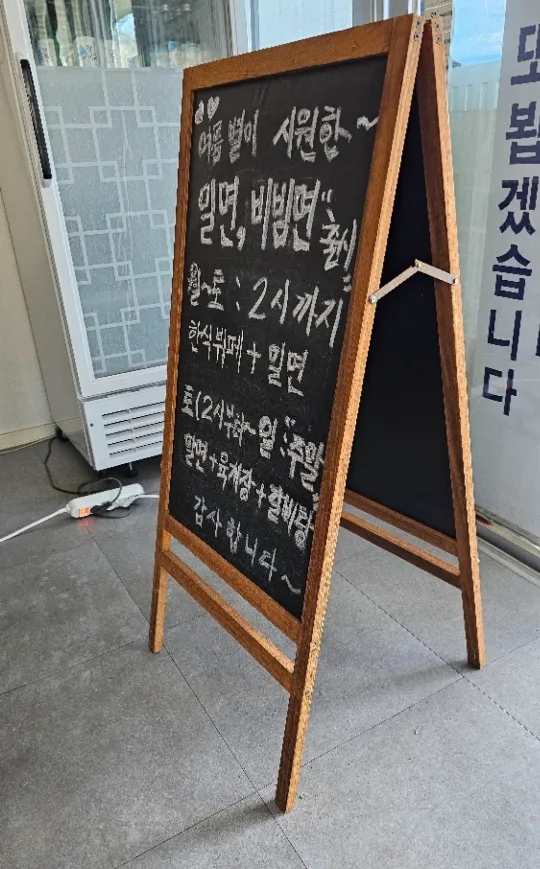 여름 별미 시원한~
밀면, 비빔면" 출시
월~토 : 2시까지
한식뷔페 + 밀면
토(2시부터~일 "주말
밀면+육개장+갈비탕
감사합니다~
또
봽
겠
습
니
다